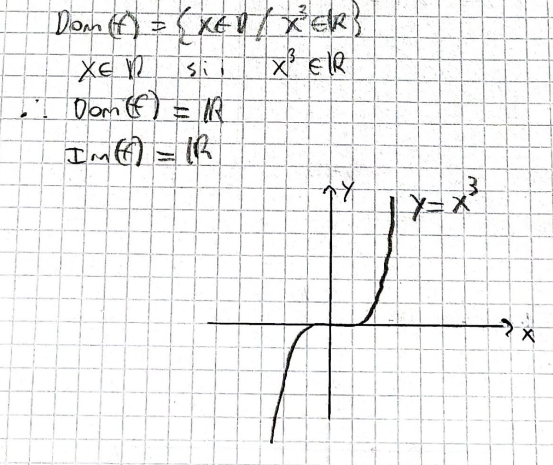 Dom(f) = {x∈D / x³∈ℝ}
x∈D sii x³∈ℝ
∴ Dom(f) = ℝ
Im(f) = ℝ
y
y = x³
x